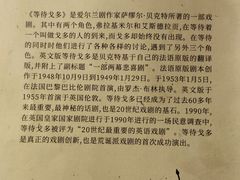 《等待戈多》是爱尔兰剧作家萨缪尔·贝克特所著的一部戏
剧。其中有两个角色,弗拉基米尔和艾斯德拉冈,在等待着
一个叫做戈多的人的到来,而戈多却始终没有出现。在等待
的同时时他们进行了各种各样的讨论,遇到了另外三个角
色。英文版等待戈多是贝克特基于自己的法语原版的翻译
版,并附上了副标题“一部两幕悲喜剧”。法语原版剧本创
作于1948年10月9日到1949年1月29日。于1953年1月5日,
在法国巴黎巴比伦剧院首演,由罗杰·布林执导。英文版于
1955年首演于英国伦敦。等待戈多已经成为了过去60多年
来最重要、最神秘的话剧,也是20世纪剧的基石。1990年,
在英国皇家国家剧院进行于1990年进行的一场民意调查中,
等待戈多被评为“20世纪最重要的英语戏剧”。等待戈多
是真正的戏剧创新,也是荒诞派戏剧的首次成功演出。